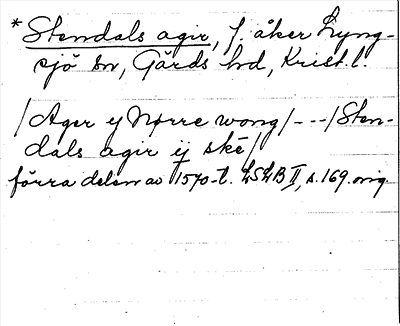 * Stendals agir, f. åker Lyng-
sjö sn, Gärds hd, Krist. l.
/Ager ij Nørre wong/---/Sten-
dals agir ij skē/
förra delen av 1570-t. LSLB II, s. 169. orig